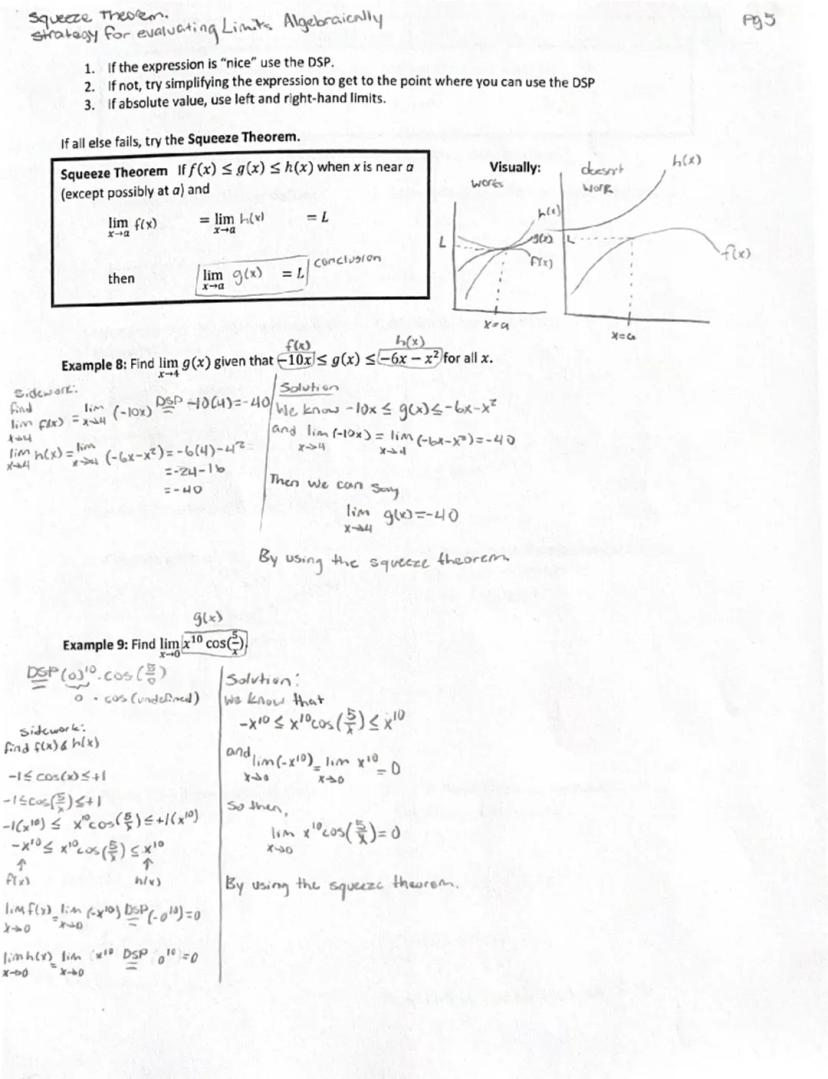 Squeeze Theorem.
Strategy for evaluating Limits Algebraically
Pg 5
1. If the expression is "nice" use the DSP.
2. If not, try simplifying the expression to get to the point where you can use the DSP
3. If absolute value, use left and right-hand limits.
If all else fails, try the Squeeze Theorem.
Squeeze Theorem If f(x) ≤ g(x) ≤ h(x) when x is near a
(except possibly at a) and
lim x→a f(x) = lim x→a h(x) = L
then lim x→a g(x) = L conclusion
Visually:
works
h(x)
L
g(x)
f(x)
x=a
doesn't
work
h(x)
L
f(x)
x=a
f(x) h(x)
Example 8: Find lim x→4 g(x) given that −10x ≤ g(x) ≤ −6x − x² for all x.
Sidework:
find
lim x→4 f(x) = lim x→4 (-10x) DSP = -10(4)=-40
lim x→4 h(x) = lim x→4 (-6x-x²) = -6(4)-4²
= -24-16
= -40
Solution
We know -10x ≤ g(x) ≤ -6x-x²
and lim x→4 (-10x) = lim x→4 (-6x-x²) = -40
Then we can say
lim x→4 g(x) = -40
By using the squeeze theorem.
g(x)
Example 9: Find lim x→0 x¹⁰ cos(5/x).
DSP (0)¹⁰ · cos(5/0)
0 · cos (undefined)
sidework:
find f(x) & h(x)
-1 ≤ cos(x) ≤ +1
-1 ≤ cos(5/x) ≤ +1
-1(x¹⁰) ≤ x¹⁰cos(5/x) ≤ +1(x¹⁰)
-x¹⁰ ≤ x¹⁰cos(5/x) ≤ x¹⁰
↑ ↑
f(x) h(x)
lim x→0 f(x) = lim x→0 (-x¹⁰) DSP = (-0¹⁰) = 0
lim x→0 h(x) = lim x→0 (x¹⁰ DSP = 0¹⁰) = 0
Solution:
We know that
-x¹⁰ ≤ x¹⁰cos(5/x) ≤ x¹⁰
and lim x→0 (-x¹⁰) = lim x→0 x¹⁰ = 0
So then,
lim x→0 x¹⁰cos(5/x) = 0
By using the squeeze theorem.